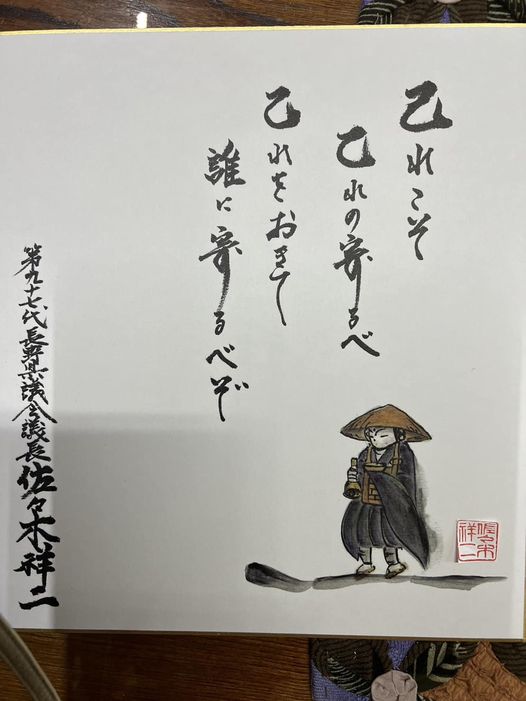 己れこそ
己れの寄るべ
己れをおきて
誰に寄るべぞ
第九十七代長野県議会議長佐々木祥二
佐々木
祥二